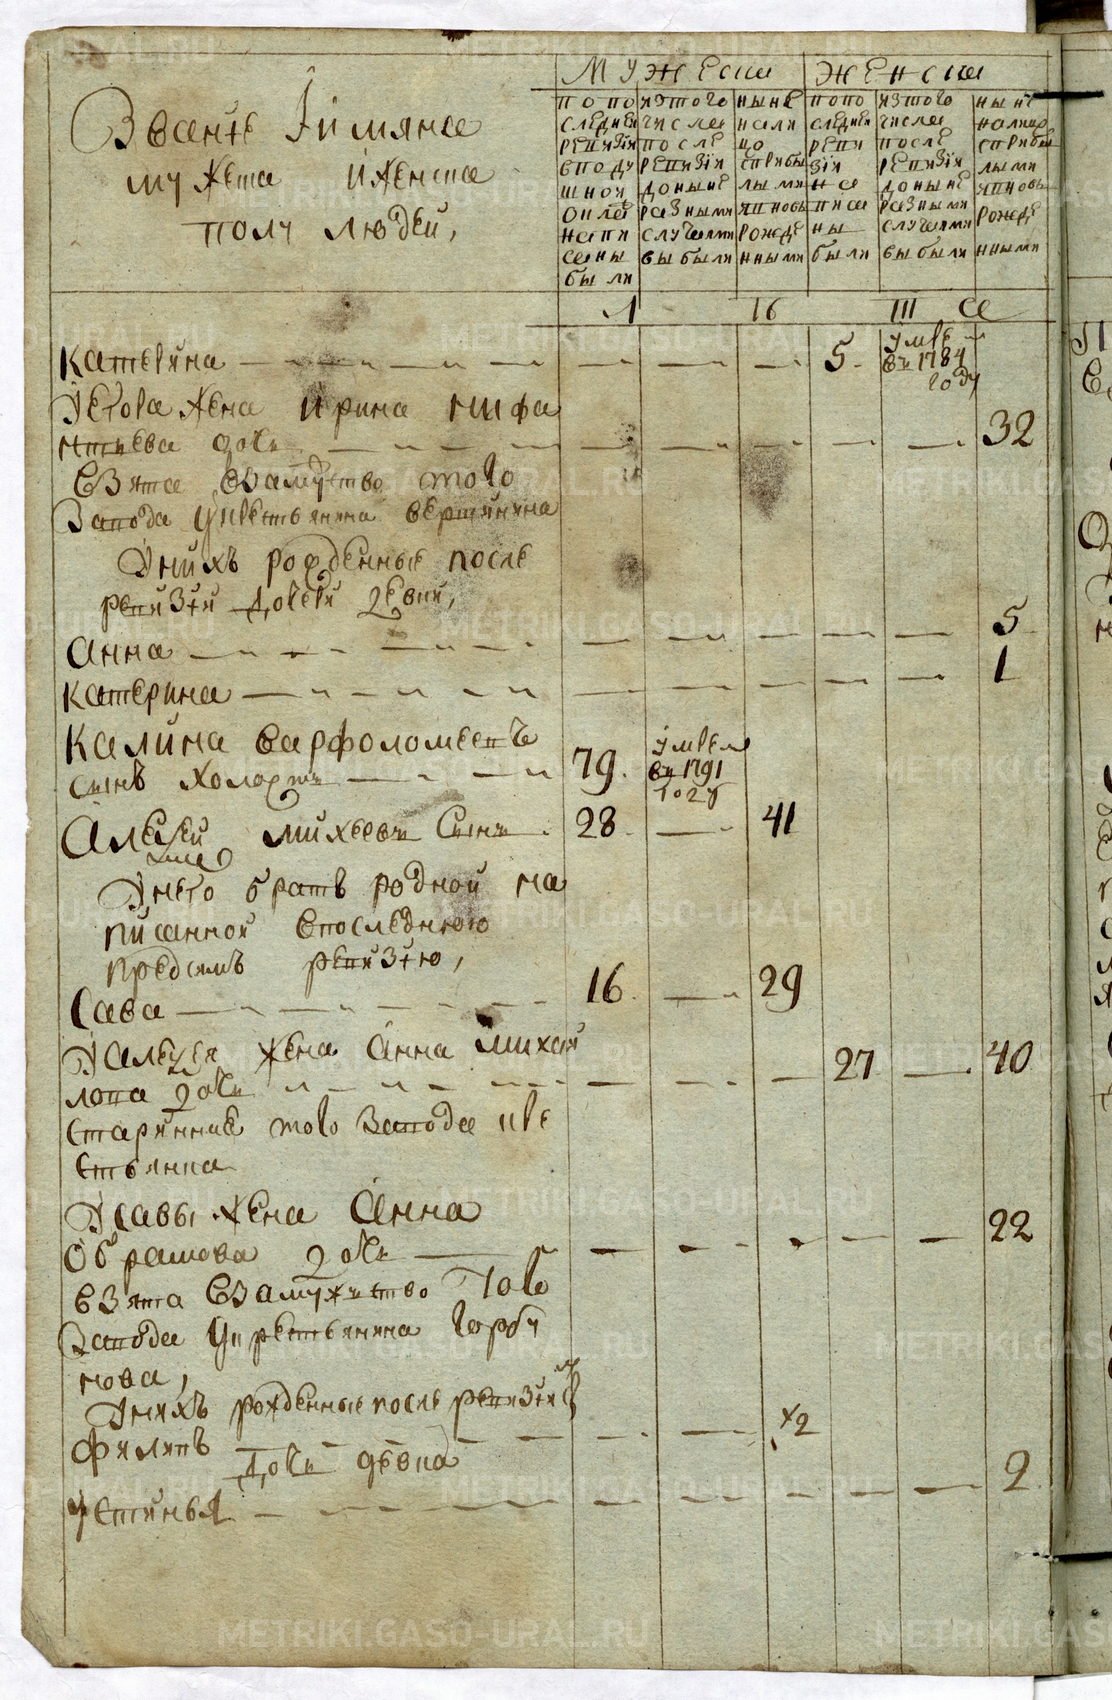 Званіе Іимяна
мужеска иженска
полу людей,
Мужески
Женски
попо
следней
ревизіи
вподу
шной
окла
напи
саны
были
изтого
числа
после
ревизіи
доныне
разными
случаями
выбыли
ныне
нали
цо
сприбы
лыми
ивновь
рожде
нными
попо
следней
реви
зіи
на
писа
ны
были
изтого
числа
после
ревизіи
доныне
разными
случаями
выбыли
ныне
налицо
сприбы
лыми
ивновь
рожде
нными
катерина 5 умре
въ 1784
году
Устова жена ирина ники фа
32
взята взамужство того
Завода укрестьянина вертинина
Уних рожденные после
ревизіи дочери девки,
анна 5
катерина 1
калина варфоломеевъ
сынъ холостъ 79 умре
въ 1791
году
Алексей михеевъ Сынъ 28 41
Унего братъ родной на
писанной впоследнюю
предсимъ ревизію,
Сава 16 29
Уалексея жена Анна михаи
лова дочь 27 40
Старинная того Завода кре
стьянка
Усавы жена Анна
дочь 22
взята Взамужство Того
Завода укрестьянина горбу
нова,
Унихъ рожденные после ревизіи
филипъ 2
дочь девка
устинья 2
METRIKI.GASO-URAL.RU